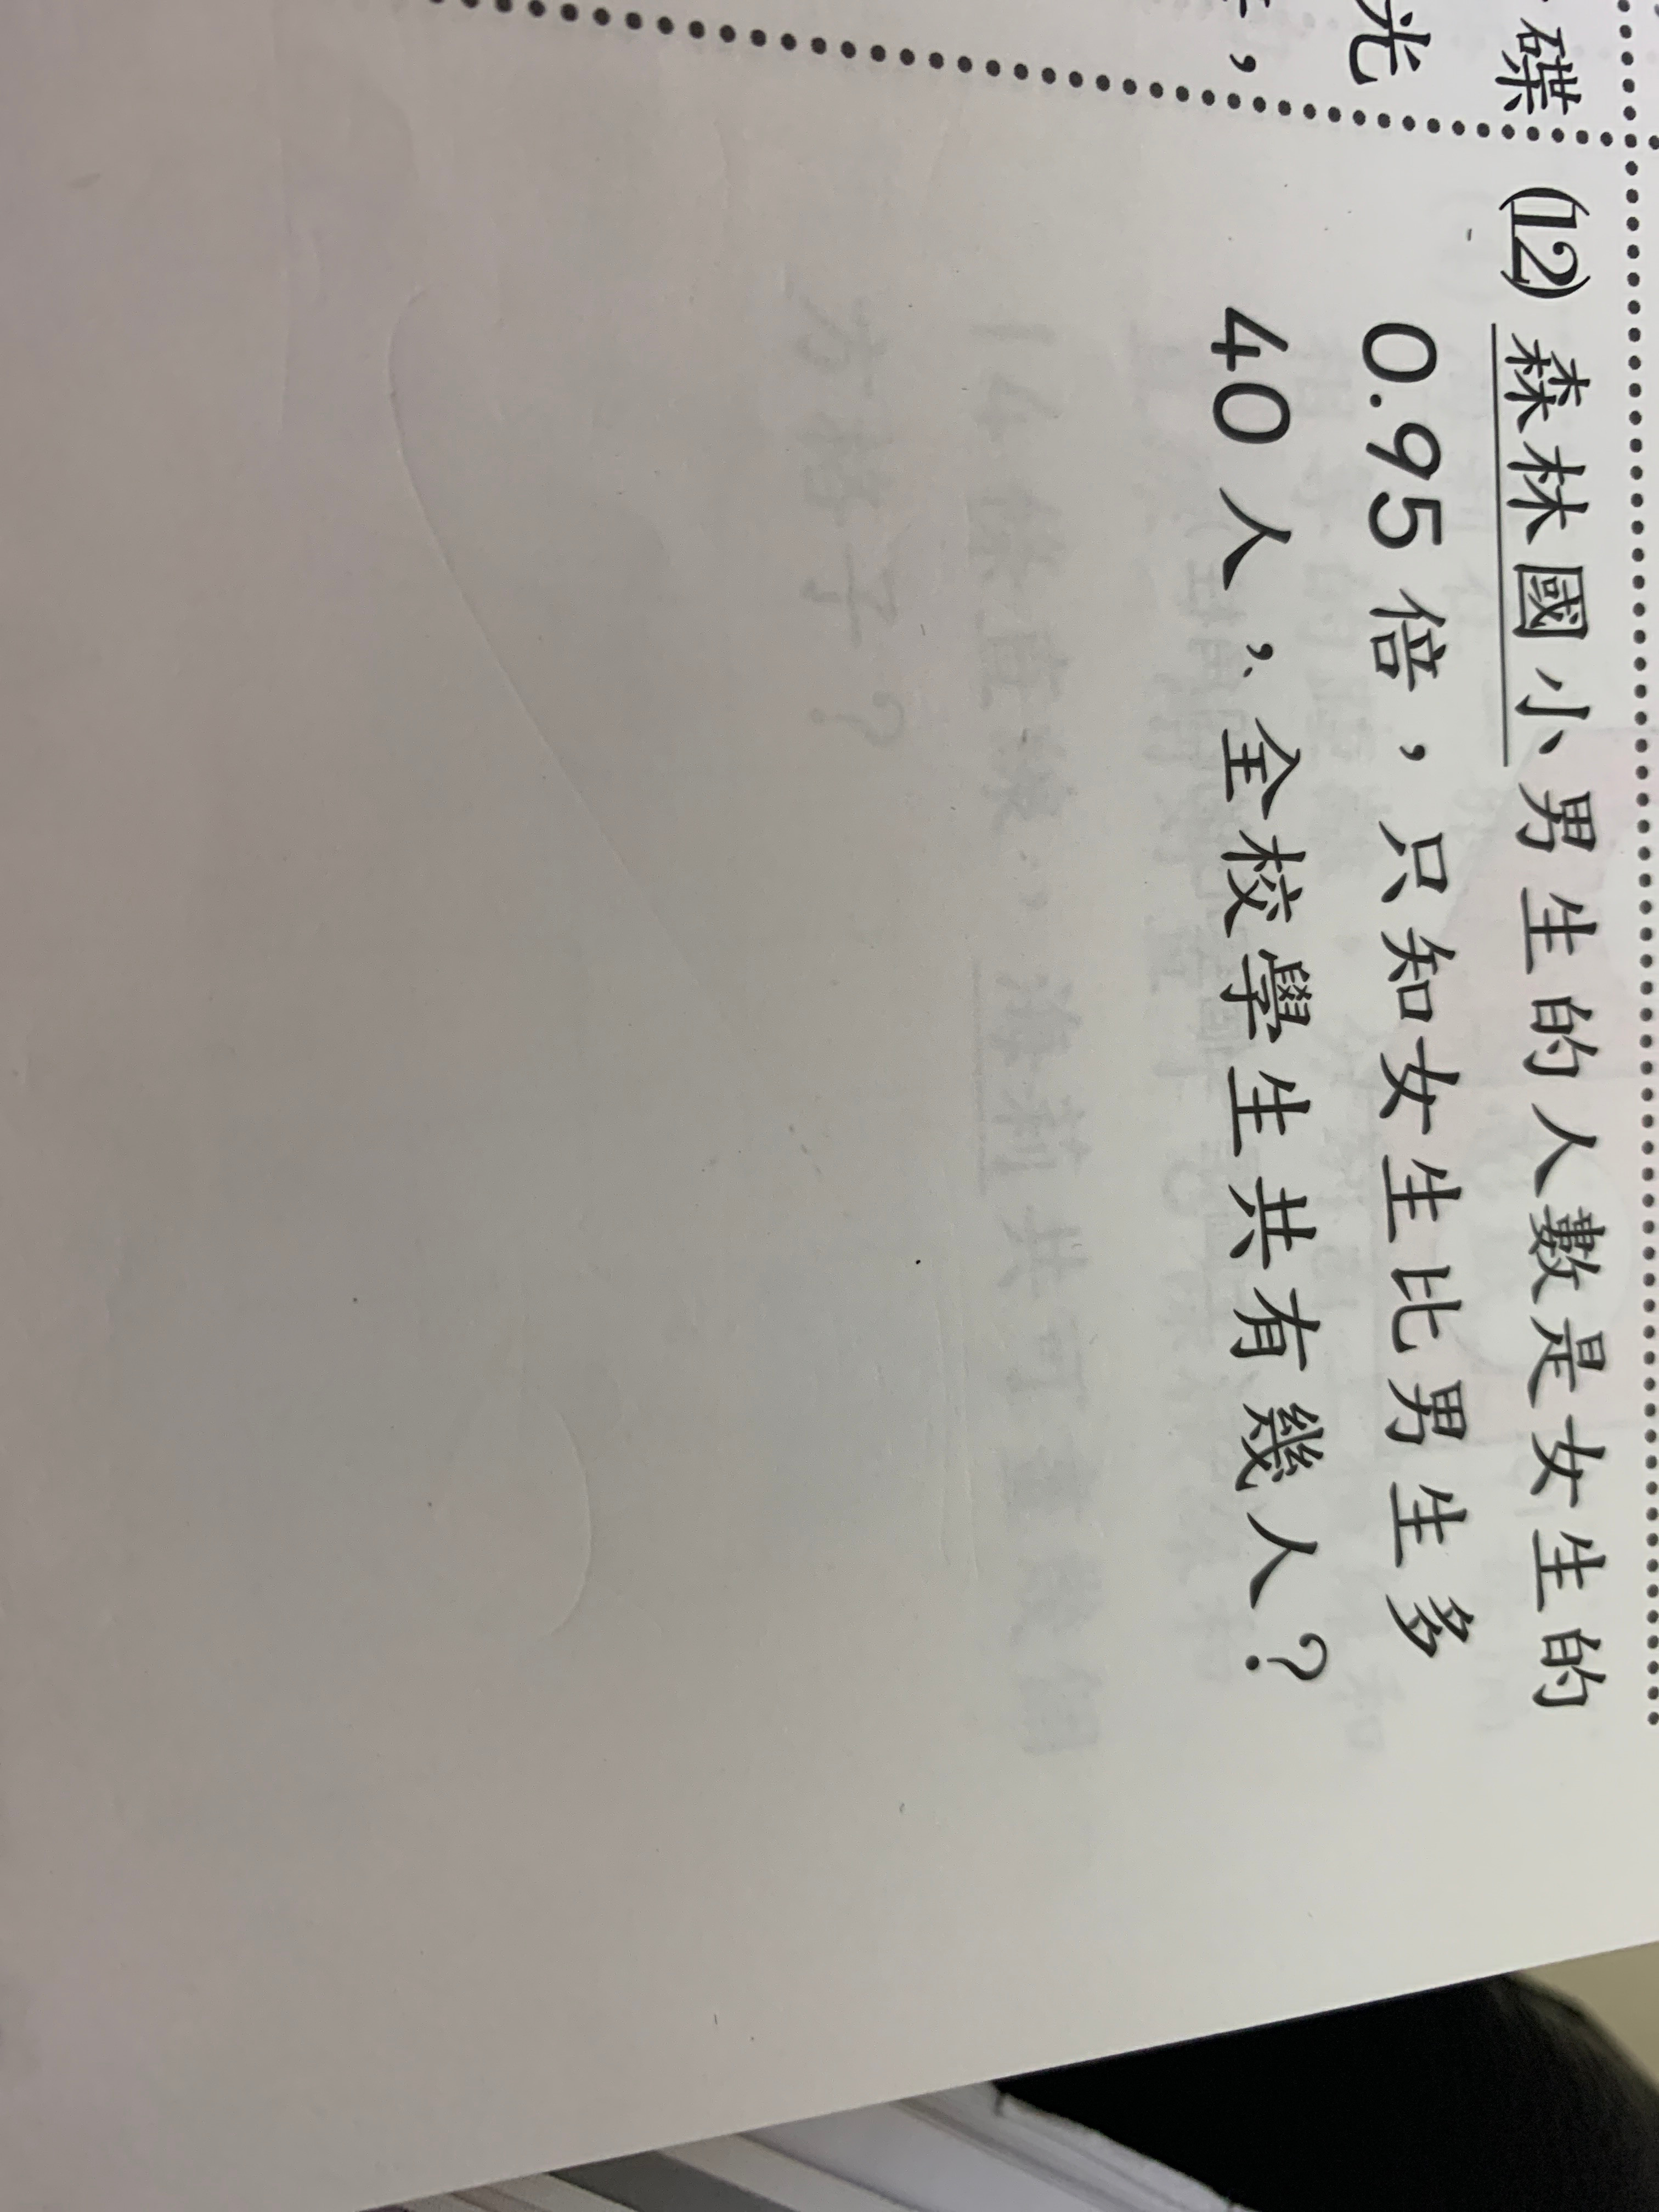 碟
光
，
(12) 森林國小男生的人數是女生的
0.95 倍，只知女生比男生多
40 人，全校學生共有幾人？